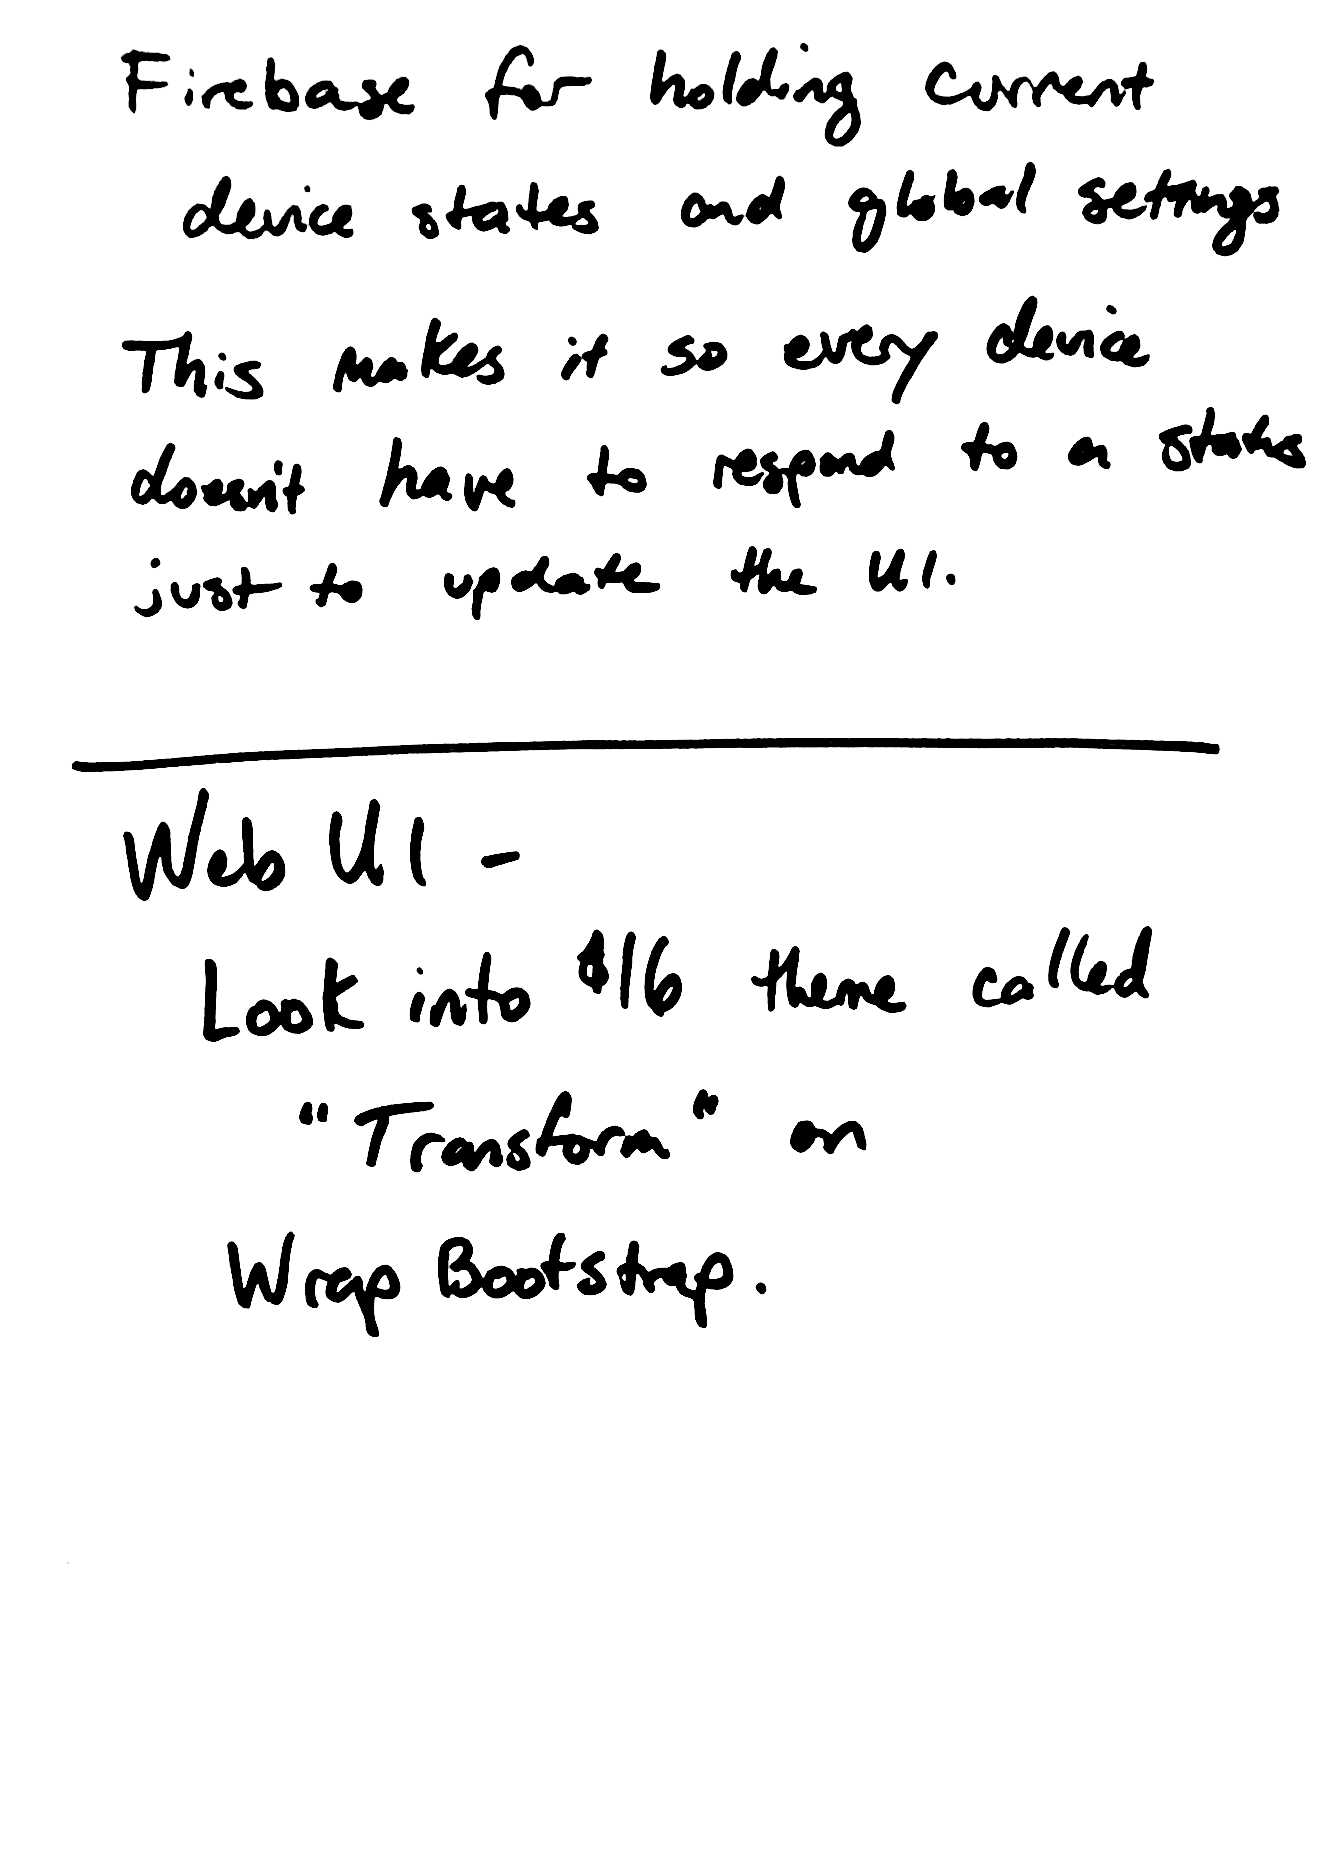 Firebase for holding current
device states and global settings
This makes it so every device
doesn't have to respond to a status
just to update the UI.
Web UI -
Look into $16 theme called
"Transform" on
Wrap Bootstrap.